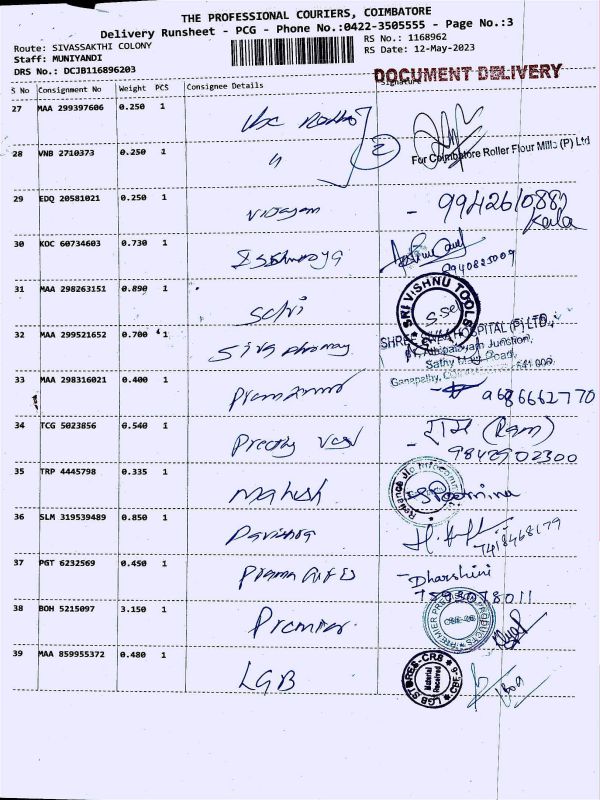 THE PROFESSIONAL COURIERS, COIMBATORE
Delivery Runsheet - PCG - Phone No.:0422-3505555 - Page No.:3
Route: SIVASSAKTHI COLONY
Staff: MUNIYANDI
DRS No.: DCJB116896203
RS No.: 1168962
RS Date: 12-May-2023
DOCUMENT DELIVERY
S No Consignment No Weight PCS Consignee Details Signature
27 MAA 299397606 0.250 1
28 VNB 2710373 0.250 1 " 2
For Coimbatore Roller Flour Mills (P) Ltd
29 EDQ 20581021 0.250 1 Vijayam
Kala
30 KOC 60734603 0.730 1
31 MAA 298263151 0.890 1 Selvi SRI VISHNU TOOLS
32 MAA 299521652 0.700 1 Siva
HOSPITAL (P) LTD.,
Junction,
Sathy Main Road,
Ganapathy,
33 MAA 298316021 0.400 1 9686662770
34 TCG 5023856 0.540 1 राम (Ram)
9842902300
35 TRP 4445798 0.335 1 Mahesh Reliance Jio Infocomm
36 SLM 319539489 0.850 1 Pavithra 7418468179
37 PGT 6232569 0.450 1 Prama Dharshini
38 BOH 5215097 3.150 1 Premier PREMIER PRODUCTS
39 MAA 859955372 0.480 1 LGB LGB STORES-CRB Material Received